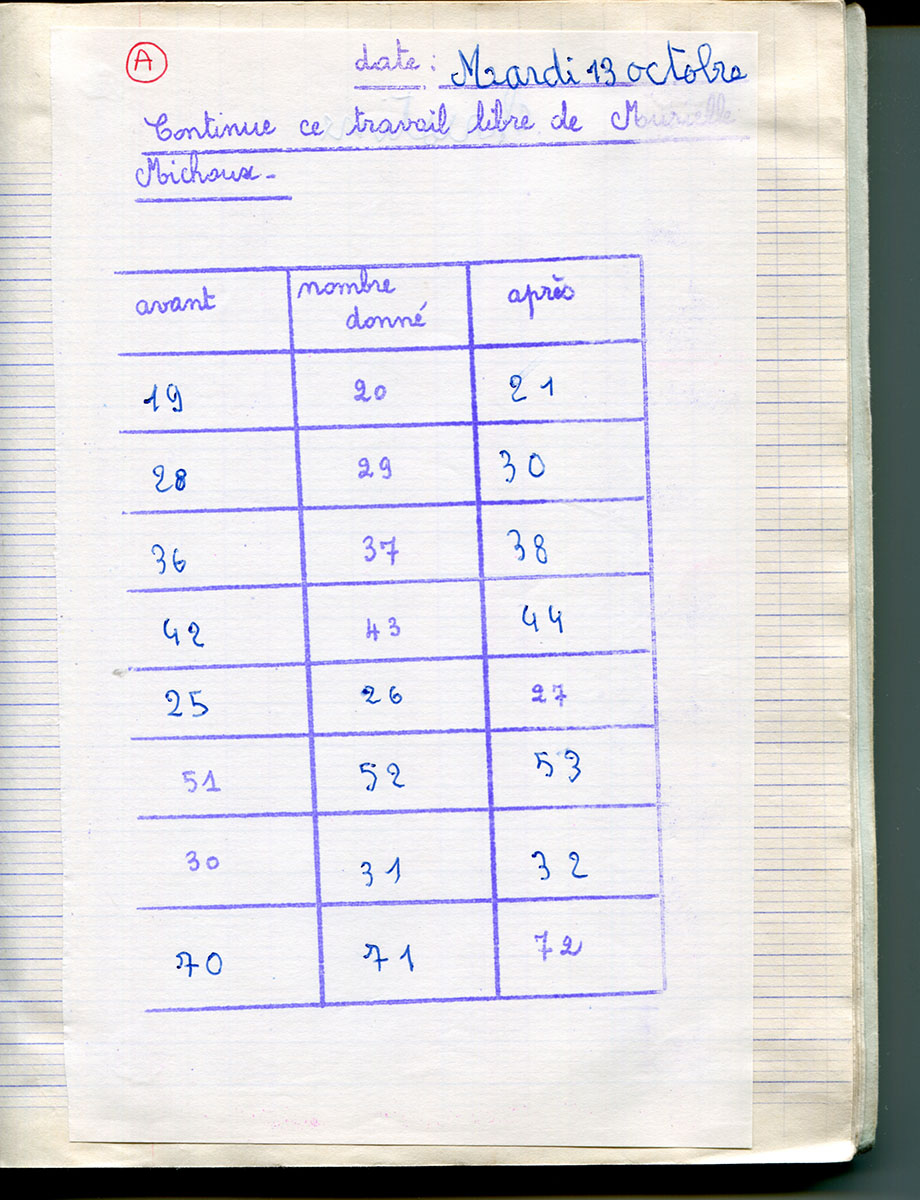 A
date : Mardi 13 octobre
Continue ce travail libre de
Michoux -
avant nombre donné après
19 20 21
28 29 30
36 37 38
42 43 44
25 26 27
51 52 53
30 31 32
70 71 72